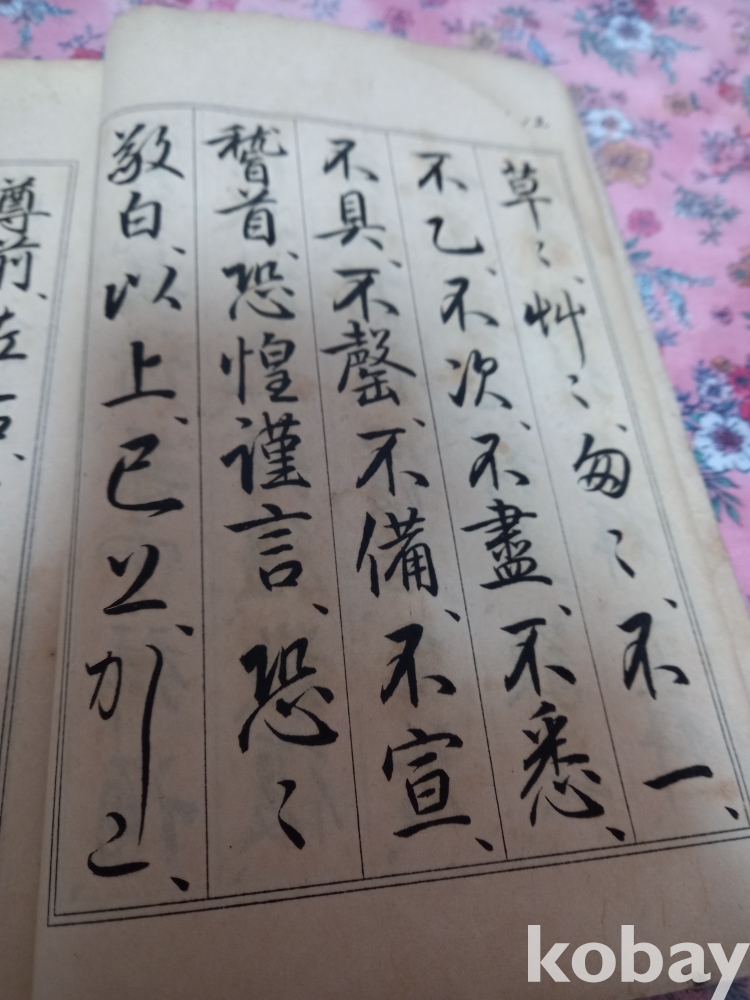 草〻、艸〻、匆〻、不一、
不乙、不次、不盡、不悉、
不具、不罄、不備、不宣、
稽首、恐惶謹言、恐〻
敬白、以上、已上、かしこ、
尊前、左右、
kobay